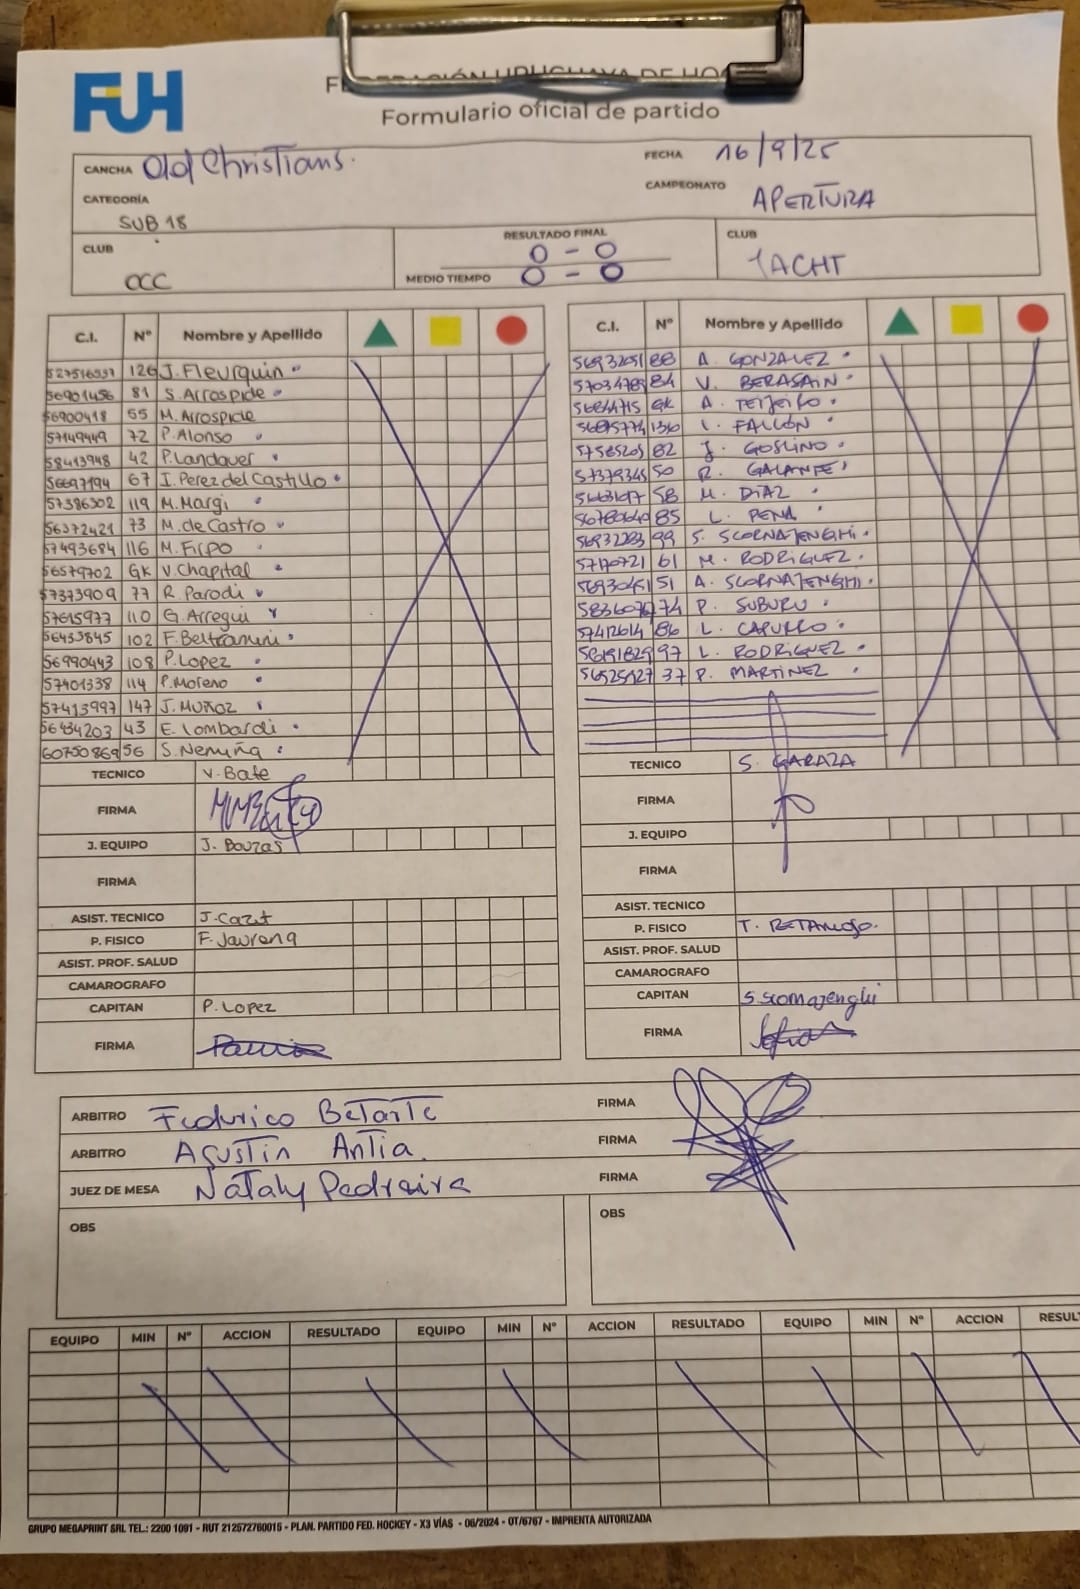 FUH
FEDERACIÓN URUGUAYA DE HO
Formulario oficial de partido
CANCHA Old Christians.
FECHA 16/9/25
CATEGORÍA SUB 18
CAMPEONATO APERTURA
CLUB OCC
RESULTADO FINAL 0 - 0
MEDIO TIEMPO 0 - 0
CLUB YACHT
C.I. Nº Nombre y Apellido
126 J. Fleurquin
56901456 81 S. Arrospide
56900418 55 M. Arrospide
57149449 72 P. Alonso
58413948 42 P. Landauer
56697194 67 I. Perez del Castillo
57386302 119 M. Margi
56372421 73 M. de Castro
57493684 116 M. Firpo
56579702 GK V. Chapital
57373909 77 R. Parodi
57615977 110 G. Arregui
56433845 102 F. Beltramini
56990443 108 P. Lopez
57401338 114 P. Moreno
57413997 147 J. Muñoz
56434203 43 E. Lombardi
60750869 56 S. Nemiña
TECNICO V. Bate
FIRMA
J. EQUIPO J. Bouzas
FIRMA
ASIST. TECNICO J. Cazt
P. FISICO F. Jaurena
ASIST. PROF. SALUD
CAMAROGRAFO
CAPITAN P. Lopez
FIRMA
C.I. Nº Nombre y Apellido
56932051 88 A. GONZALEZ
57034789 84 V. BERASAIN
GK A. TEIJEIRO
L. FALCÓN
57585205 82 J. GOSLINO
57379345 50 R. GALANTE
58 M. DIAZ
56780640 85 L. PENA
56932283 99 S. SCORNAJENGHI
57170721 61 M. RODRIGUEZ
56930451 51 A. SCORNAJENGHI
74 P. SUBURU
57412614 86 L. CAPURRO
56191829 97 L. RODRIGUEZ
56525127 37 P. MARTINEZ
TECNICO S. GARAZA
FIRMA
J. EQUIPO
FIRMA
ASIST. TECNICO
P. FISICO T. RETAMOSO.
ASIST. PROF. SALUD
CAMAROGRAFO
CAPITAN S. Scornajenghi
FIRMA
ARBITRO Federico Betarte FIRMA
ARBITRO Agustín Antia. FIRMA
JUEZ DE MESA Nataly Pedreira FIRMA
OBS OBS
EQUIPO MIN Nº ACCION RESULTADO EQUIPO MIN Nº ACCION RESULTADO EQUIPO MIN Nº ACCION RESUL
GRUPO MEGAPRINT SRL TEL.: 2200 1091 - RUT 212572760015 - PLAN. PARTIDO FED. HOCKEY - X3 VÍAS - 06/2024 - OT/6767 - IMPRENTA AUTORIZADA